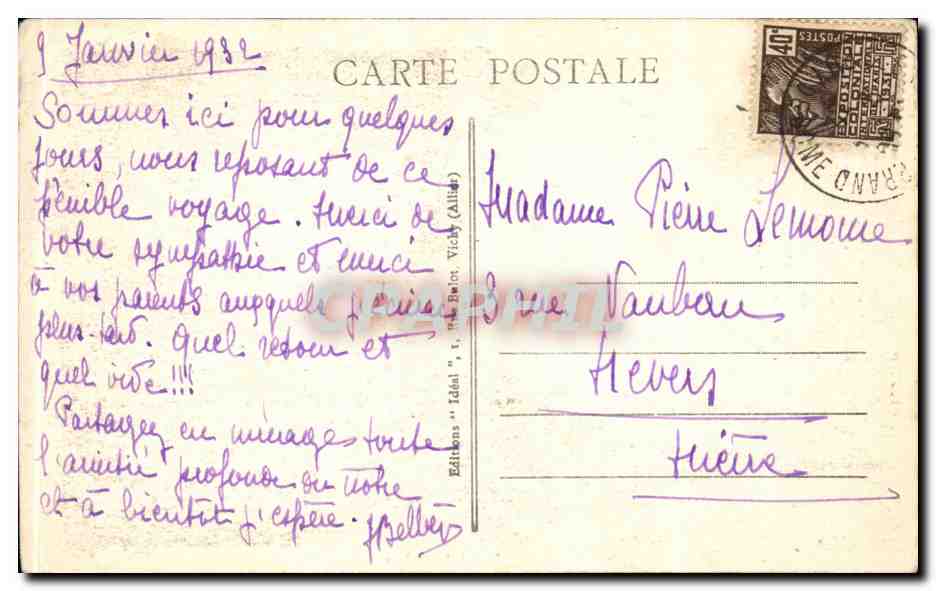 9 Janvier 1932
CARTE POSTALE
Sommes ici pour quelques
jours, nous reposant de ce
pénible voyage. Merci de
votre sympathie et merci
à vos parents auxquels j'écrirai
plus tard. Quel retour et
quel vide !!!
Partagez en ménages toute
l'amitié profonde du nôtre
et à bientôt j'espère.
Editions " Idéal ", 1, Rue Bulot, Vichy (Allier)
Madame Pierre Lemoine
3 rue Vauban
Nevers
Nièvre
40c
POSTES
EXPOSITION
COLONIALE
INTERNATIONALE
DE PARIS
1931
CPAPHIL